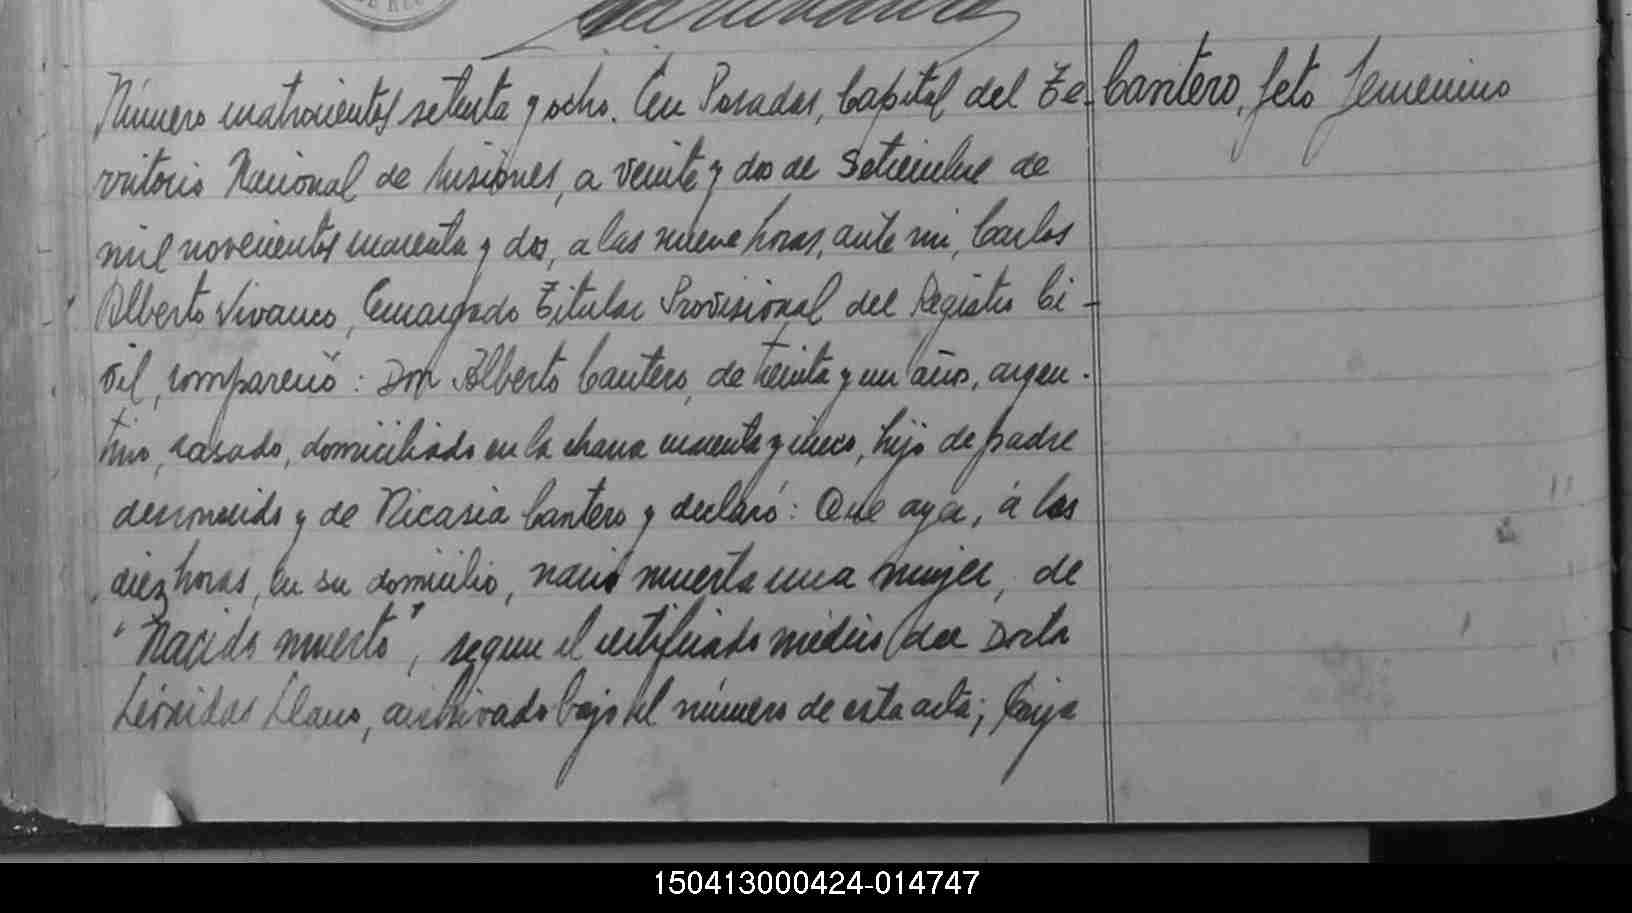 Número cuatrocientos setenta y ocho. En Posadas, Capital del Te-
rritorio Nacional de Misiones, a veinte y dos de Setiembre de
mil novecientos cuarenta y dos, a las nueve horas, ante mi, Carlos
Alberto Vivanco, Encargado Titular Provisional del Registro Ci-
vil, compareció: Don Alberto Cantero, de treinta y un años, argen-
tino, casado, domiciliado en la chacra cuarenta y cinco, hijo de padre
desconocido y de Nicasia Cantero y declaró: Que ayer, á las
diez horas, en su domicilio, nació muerta una mujer, de
"Nacido muerto", según el certificado médico del Doctor
Leónidas Llano, archivado bajo el número de esta acta; hija
Cantero, feto femenino
150413000424-014747